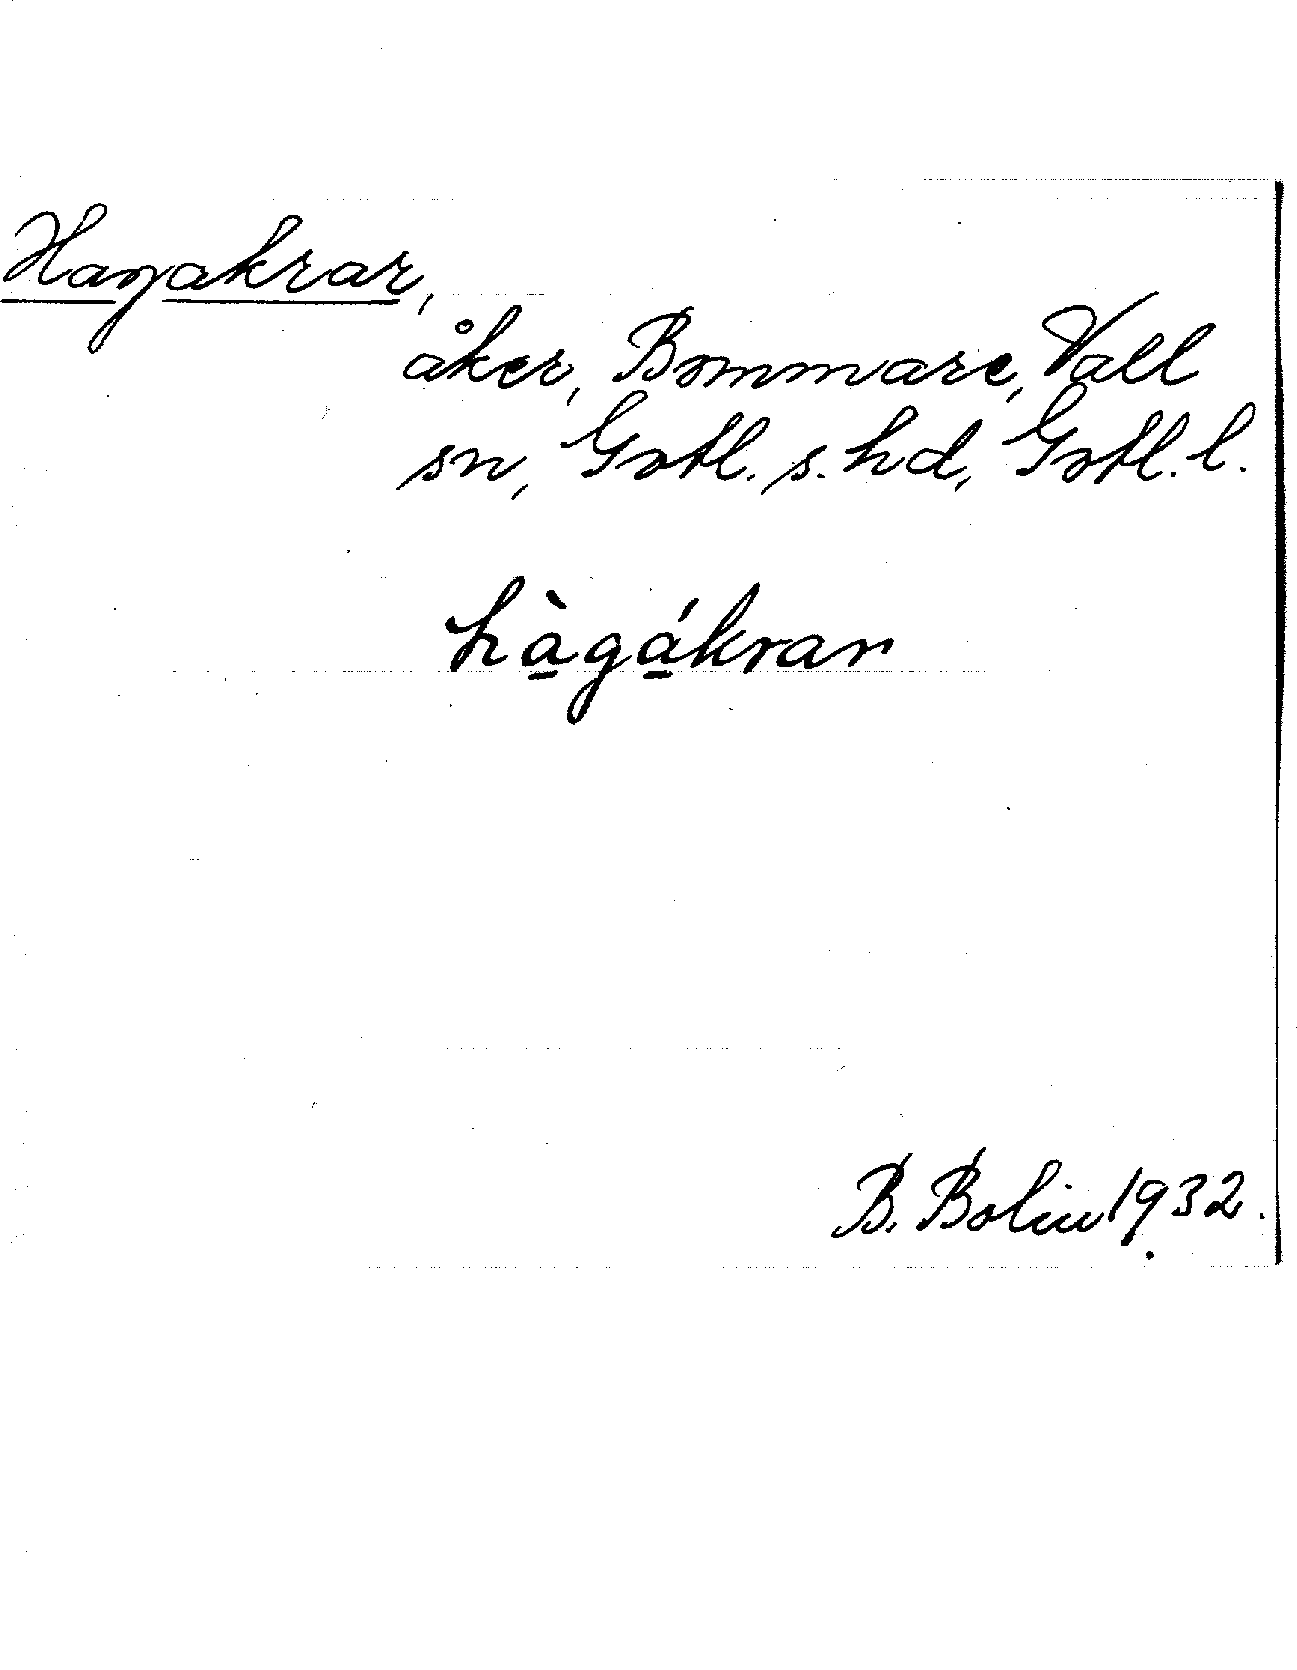 Hagakrar,
åker, Bommare, Vall
sn, Gotl. s. hd, Gotl. l.
hà̱gá̱krar
B. Bolin 1932.